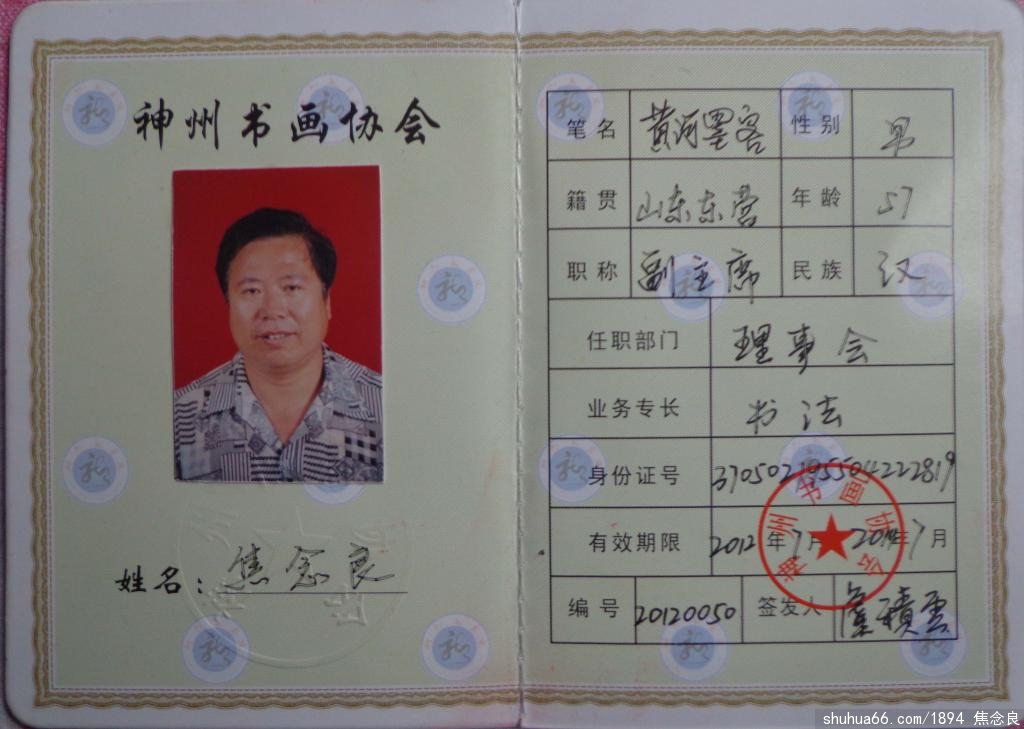 神州书画协会
姓名：焦念良
笔名 黄河墨客 性别 男
籍贯 山东东营 年龄 57
职称 副主席 民族 汉
任职部门 理事会
业务专长 书法
身份证号
有效期限 2012年7月 年7月
编号 20120050 签发人
神州书画协会
shuhua66.com/1894 焦念良